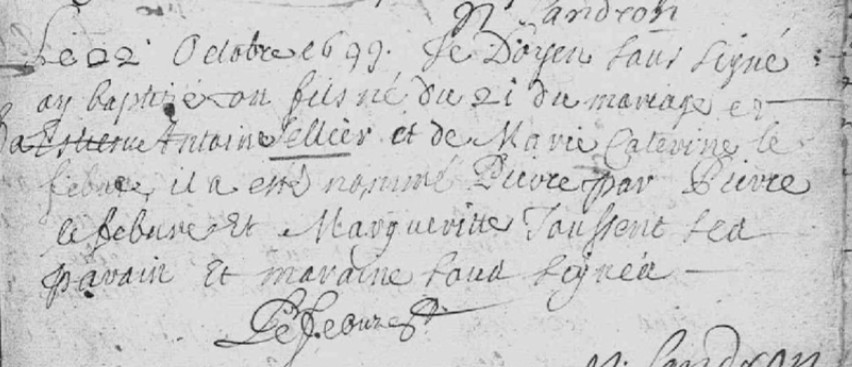 N. Landron
Le 22 Octobre 1699. Je Doyen sous signé
ay baptizé un fils né du 21 du mariage
Estienne Antoine Tellier et de Marie Caterine le
febure, il a esté nommé Pierre par Pierre
le febure Et Margueritte Toussent ses
parain Et maraine sous signéz
Lefebure
N. Landron